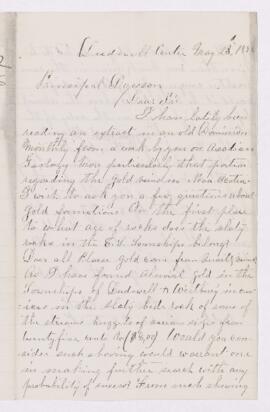 Dudswell Center May 25th 18
Principal Dawson
Dear Sir
I have lately been
reading an extract in an old Dominion
Monthly from a work by you on Acadian
Geology more particularly that portion
regarding the gold mines in Nova Scotia
I wish to ask you a few questions about
Gold formations In the first place
to what age of rocks does the slaty
rocks in the E. Townships belong?
Does all Placer gold come from quartz veins
as I have found alluvial gold in the
Townships of Dudswell & Westbury in
on the slaty bed rock of some of
the streams nuggets of various sizes from
twenty five cents to ($8.00) Would you con
sider such showing would warrant one
in making further search with any
probability of success? From such showing